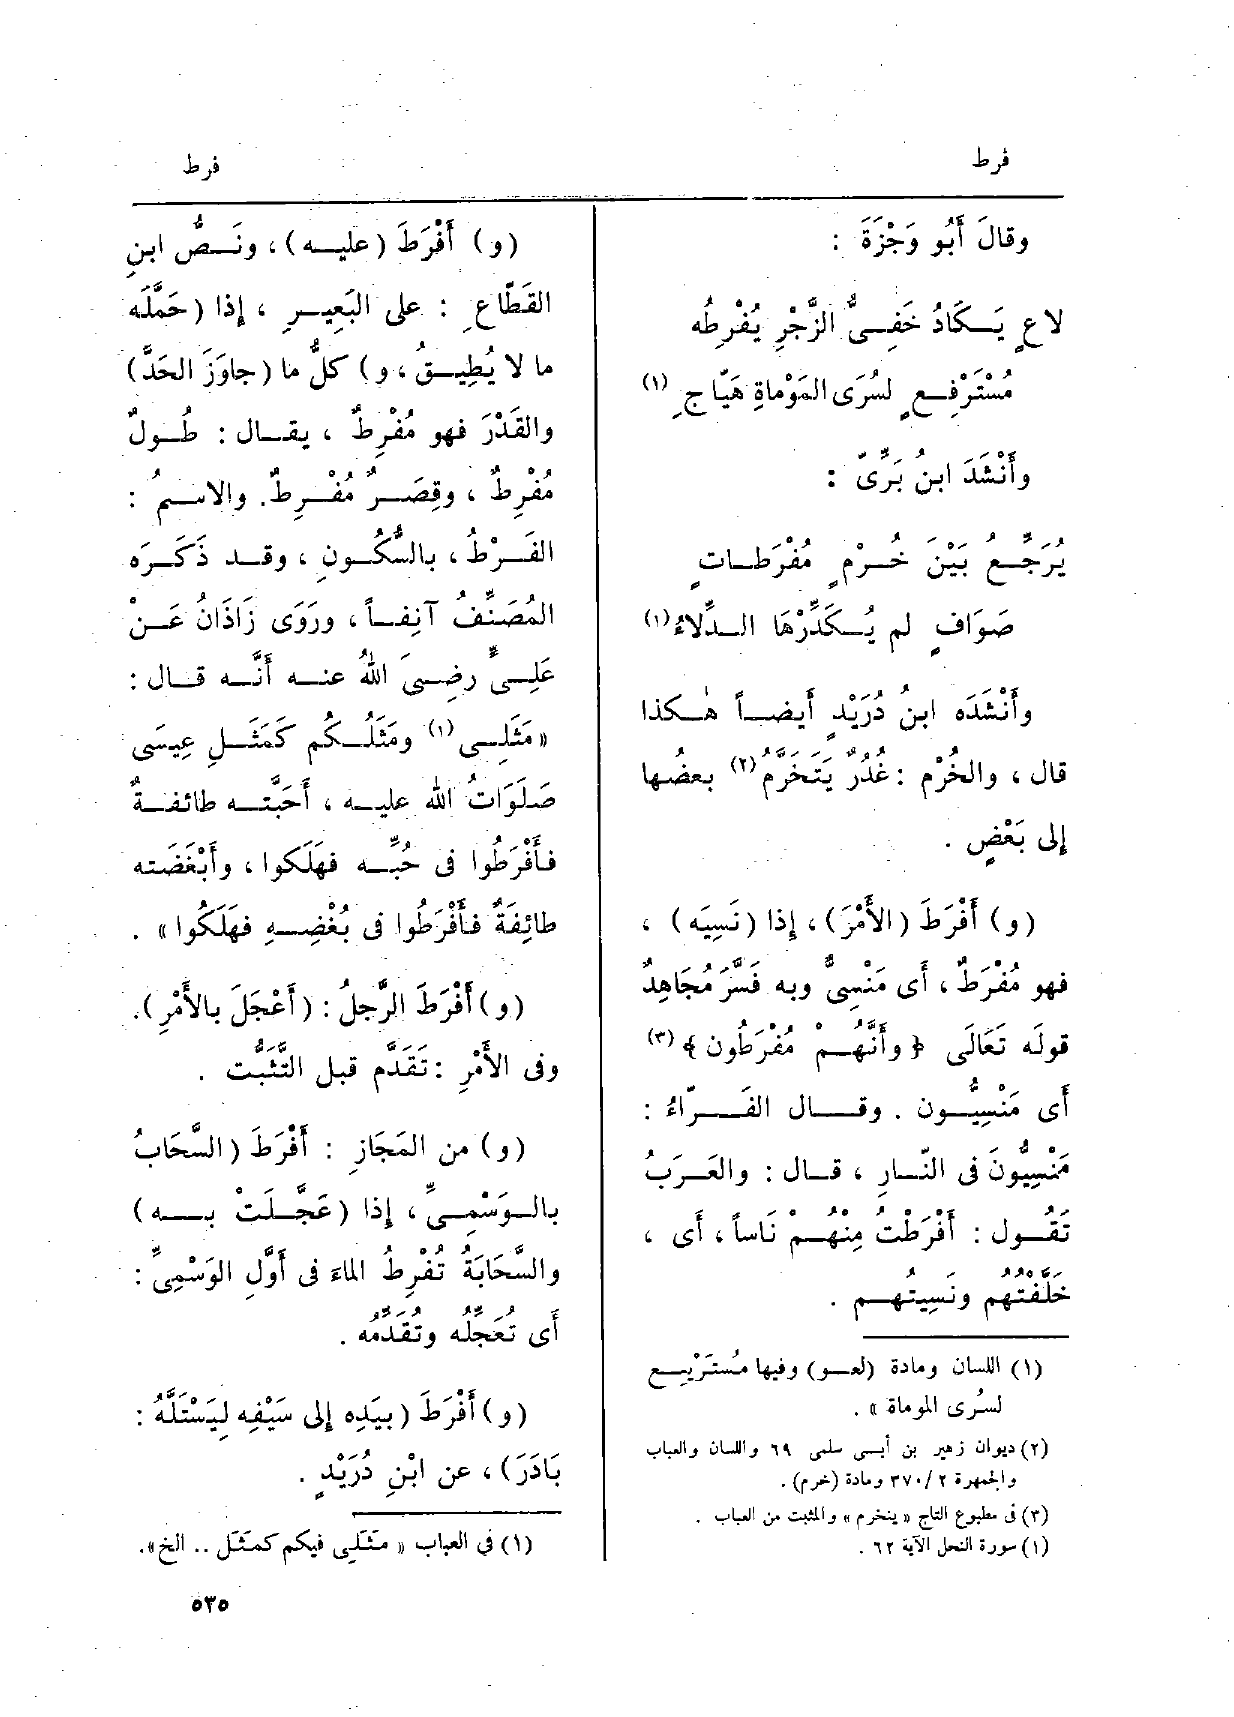 فرط
فرط
وقالَ أَبُو وَجْزَةَ :
لاعٍ يَـكَادُ خَفِـىُّ الزَّجْرِ يُفْرِطُه
مُسْتَرْفِـعٍ لسُرَى المَوْماةِ هَيّاجِ (١)
وأَنْشَدَ ابنُ بَرِّىّ :
يُرَجِّـعُ بَيْنَ خُـرْمٍ مُفْرَطـاتٍ
صَوَافٍ لم يُـكَدِّرْهَا الـدِّلاءُ (١)
وأَنْشَدَه ابنُ دُرَيْدٍ أَيضـاً هٰـكذا
قال ، والخُرْم : غُدُرٌ يَتَخَرَّمُ (٢) بعضُها
إلى بَعْضٍ .
(و) أَفْرَطَ (الأَمْرَ) ، إذا (نَسِيَه) ،
فهو مُفْرَطٌ ، أَى مَنْسِىٌّ وبه فَسَّرَ مُجَاهِدٌ
قولَه تَعَالَى ﴿ وأَنَّهُـمْ مُفْرَطُون ﴾ (٣)
أَى مَنْسِيُّـون . وقـال الفَـرّاءُ :
مَنْسِيُّونَ فى النّـارِ ، قـال : والعَـرَبُ
تَقُـول : أَفْرَطْتُ مِنْهُـمْ نَاساً ، أَى ،
خَلَّفْتُهُم ونَسِيتُهـم .
(١) اللسان ومادة (لعـو) وفيها مُستَرْبِـع
لسُرى الموماة » .
(٢) ديوان زهير بن أبـى سلمى ٦٩ واللسان والعباب
والجمهرة ٢ /٣٧٠ ومادة (خرم) .
(٣) فى مطبوع التاج « ينخرم » والمثبت من العباب .
(١) سورة النحل الآية ٦٢ .
(و) أَفْرَطَ (عليـه) ، ونَـصُّ ابنِ
القَطّاعِ : على البَعِيـرِ ، إذا (حَمَّلَه
ما لا يُطِيـقُ ، و) كلُّ ما (جاوَزَ الحَدَّ)
والقَدْرَ فهو مُفْرِطٌ ، يقـال : طُـولٌ
مُفْرِطٌ ، وقِصَـرٌ مُفْـرِطٌ . والاسـمُ :
الفَـرْطُ ، بالسُّكُـونِ ، وقـد ذَكَـرَه
المُصَنِّفُ آنِفـاً ، ورَوَى زَاذَانُ عَـنْ
عَلِـىٍّ رضِـىَ اللهُ عنـه أَنَّـه قـال :
« مَثَلِـى (١) ومَثَلُـكُم كَمَثَـلِ عِيسَى
صَلَوَاتُ الله عليـه ، أَحَبَّتـه طائفـةٌ
فـأَفْرَطُوا فى حُبِّـه فهَلَكوا ، وأَبْغَضَته
طائِفَةٌ فـأَفْرَطُوا فى بُغْضِـهِ فهَلَكُوا » .
(و) أَفْرَطَ الرَّجلُ : (أَعْجَلَ بالأَمْرِ) .
وفى الأَمْرِ : تَقَدَّم قبل التَّثَبُّت .
(و) من المَجَازِ : أَفْرَطَ (السَّحَابُ
بالـوَسْمِـىِّ ، إذا (عَجَّلَـتْ بـه)
والسَّحَابَةُ تُفْرِطُ الماءَ فى أَوَّلِ الوَسْمِىِّ :
أَى تُعَجِّلُه وتُقَدِّمُه .
(و) أَفْرَطَ (بيَدِه إلى سَيْفِه لِيَسْتَلَّهُ :
بَادَرَ) ، عن ابْنِ دُرَيْدٍ .
(١) فى العباب « مثَلـى فيكم كمثَـل .. الخ » .
٥٣٥